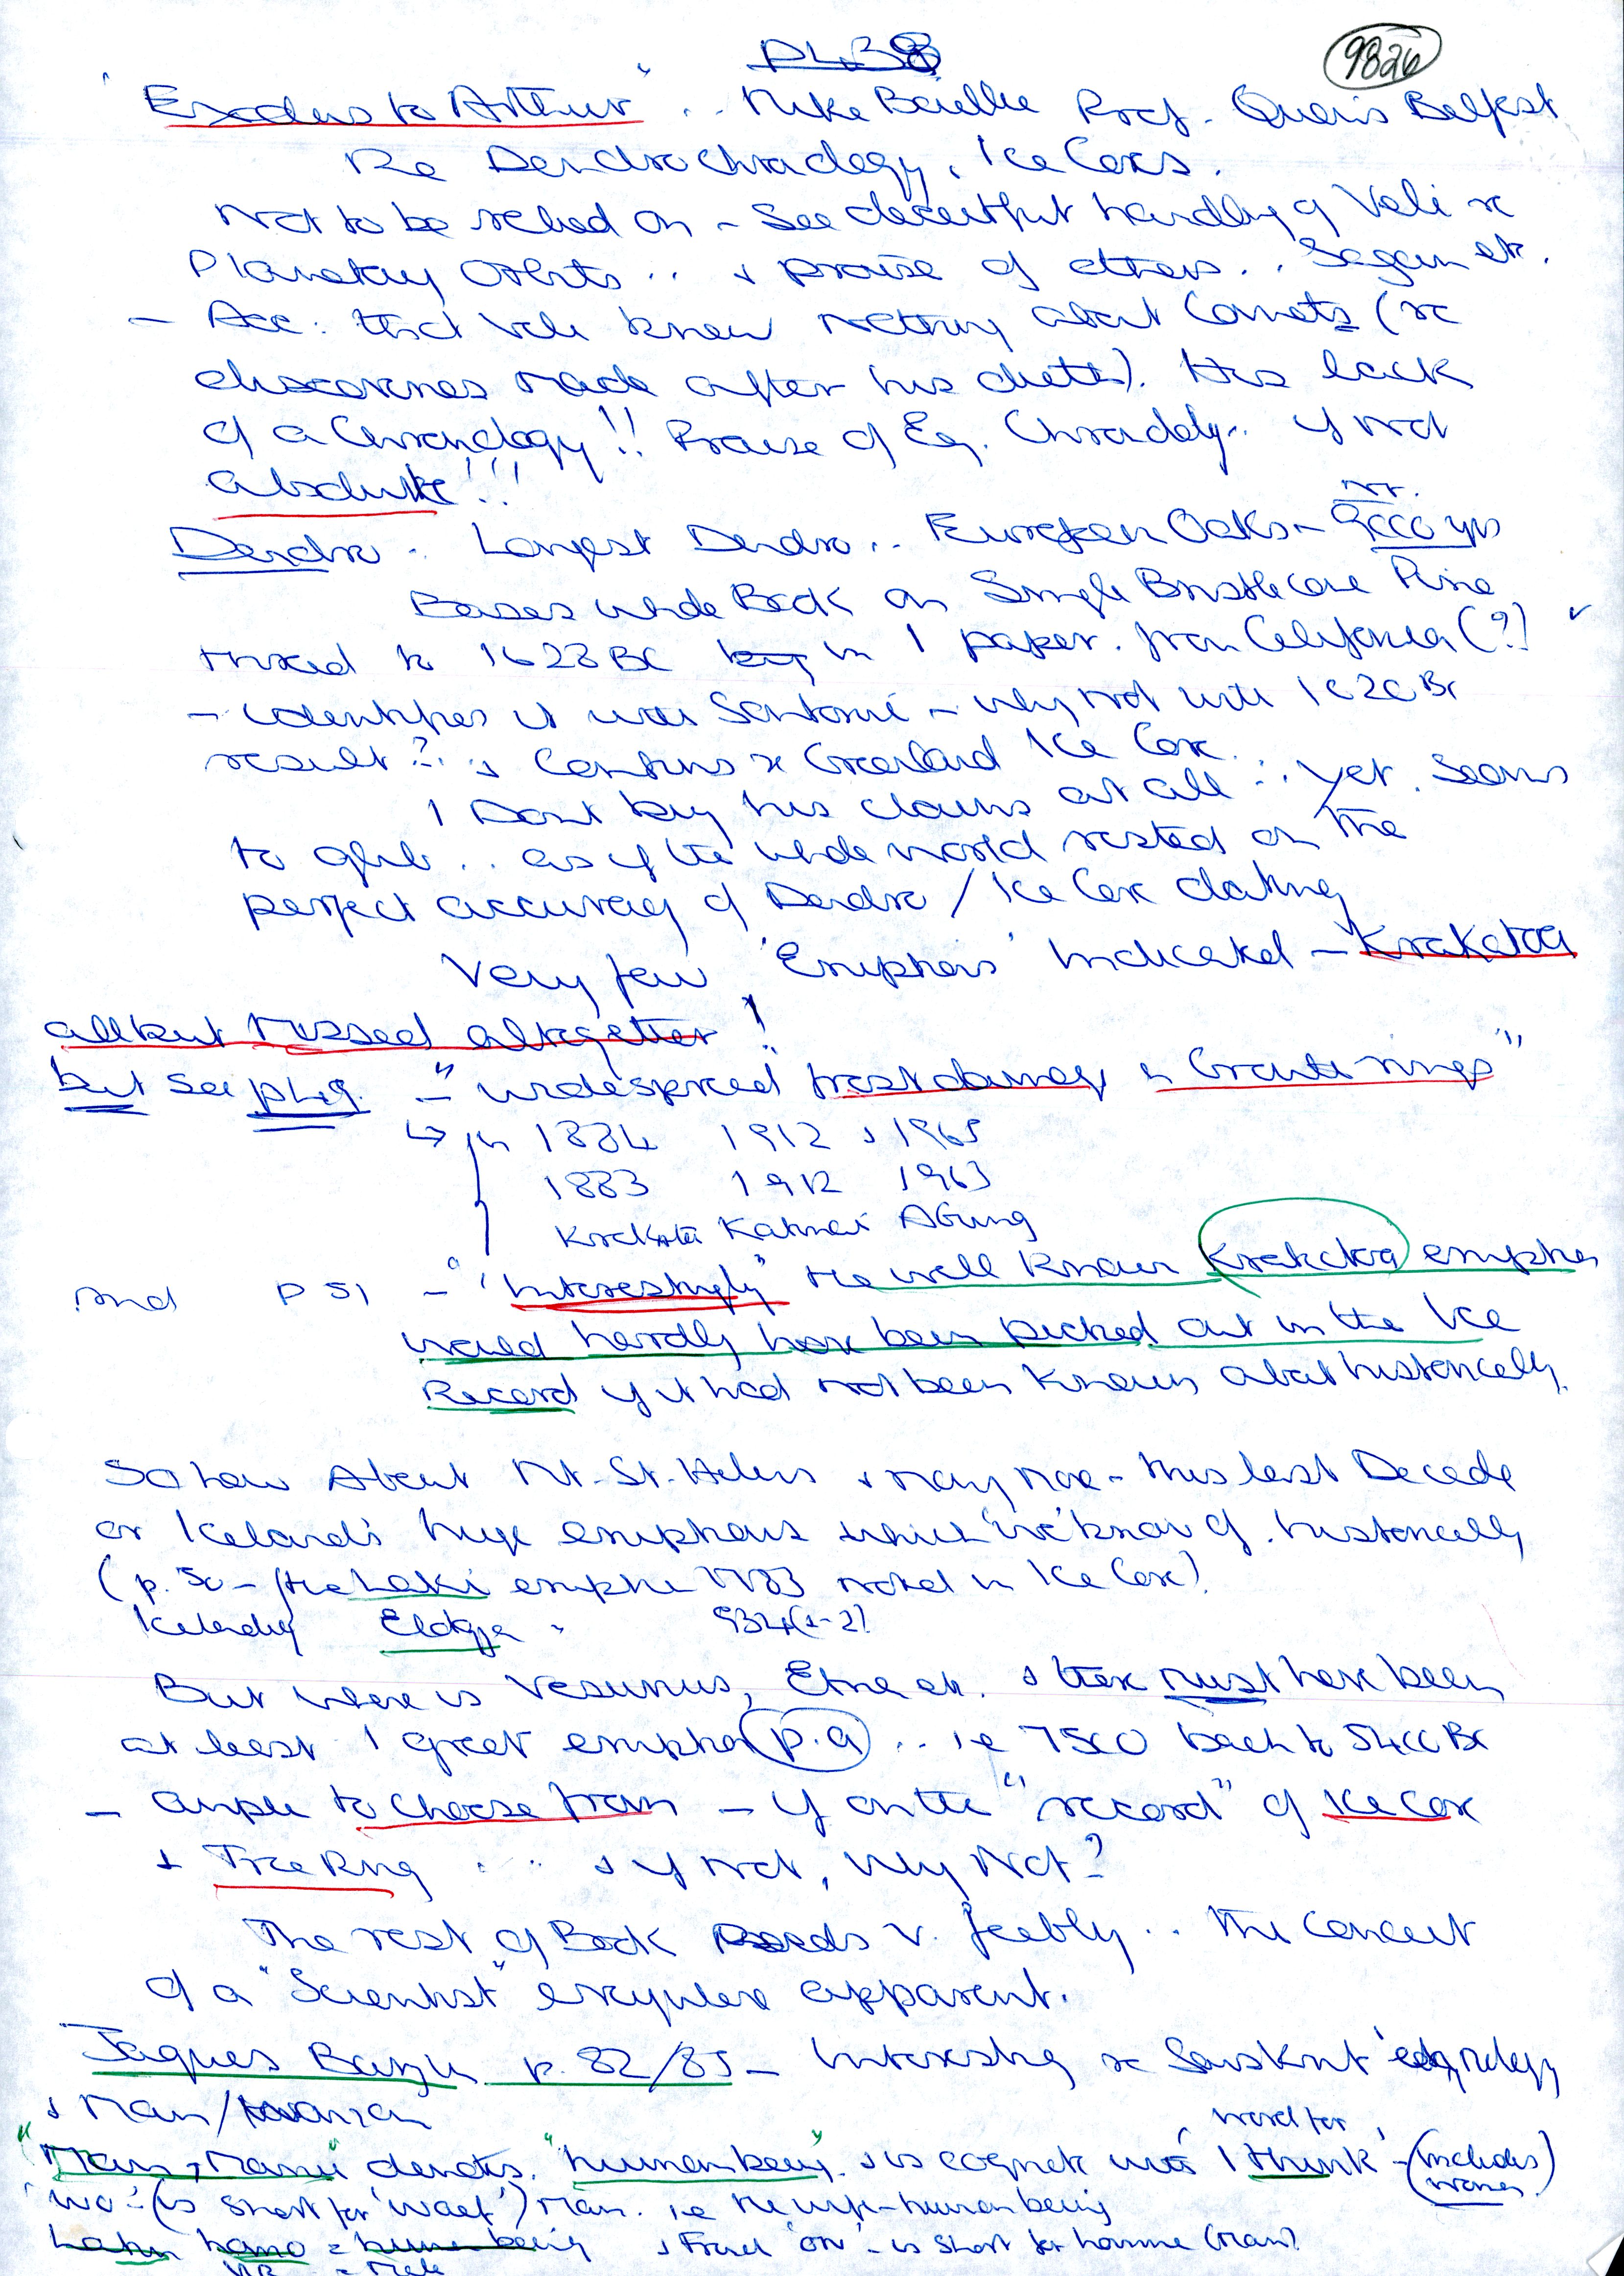 PL38
9826
"Exodus to Arthur" .. Mike Baillie Prof. Queens Belfast
Re Dendrochronology, Ice Cores.
Not to be relied on - See deceitful handling of Veli re
Planetary Orbits .. & praise of others .. Sagan etc.
- Acc: that Veli knew nothing about Comets (re
discoveries made after his death). His lack
of a Chronology!! Praise of Eg. Chronology .. if not
absolute!!!
Dendro .. Longest Dendro .. European Oaks - 9000 yrs
Bases whole Book on Single Bristlecone Pine
to 1628 BC in 1 paper. from California (?)
- identifies it with Santorini - why not with 1620 BC
result? .. & Confirms re Greenland Ice Core.
I Dont buy his claims at all .. Yet. Seems
to .. as if the whole world rested on the
perfect accuracy of Dendro / Ice Core dating
Very few 'Eruptions' Indicated - Krakatoa
all but missed altogether!
but See - "widespread frost damage in Growth rings"
in 1884 1912 & 1965
1883 1912 1963
Krakatoa Katmai AGung
And P 51 - "Interestingly" the well known Krakatoa eruption
would hardly have been picked out in the Ice
Record if it had not been known about historically.
So how About Mt. St. Helens & many more - this last Decade
or Iceland's huge eruptions which 'we' know of. historically
(p. 50 - the Laki eruption 1783 noted in Ice Core)
Icelandic Eldgja " 934(±2)
But where is Vesuvius, Etna etc. & there must have been
at least 1 great eruption p.a .. i.e 7500 back to 5400 BC
- ample to choose from - if on the "record" of Ice Core
& Tree Ring .. .. & if not, why Not?
The rest of Book Reads v. feebly .. The Conceit
of a "Scientist" everywhere apparent.
Jaques Barzun p. 82/85 - Interesting re Sanskrit
& Man/
word for
"Man, Manu" denotes "human being" & is cognate with 'I think' - (includes women)
'wo' = (is short for 'waef') Man. i.e the wife-human being
Latin homo = human being & French 'on' - is short for homme (man)
VIR = Male